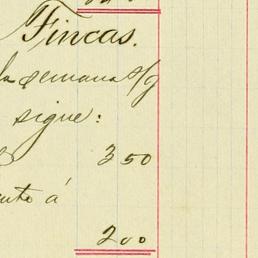 Fincas.
la semana s/g
sigue:
350
ento á
200